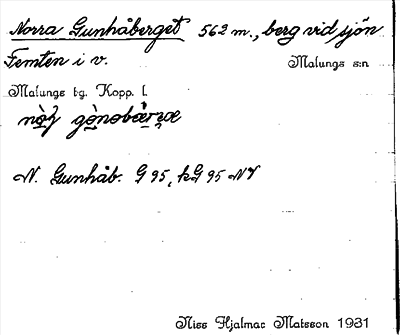 Norra Gunhåberget 562 m., berg vid sjön
Femten i v. Malungs s:n
Malungs tg. Kopp. l.
N. Gunhåb. G 95, kG 95 NV
Niss Hjalmar Matsson 1931